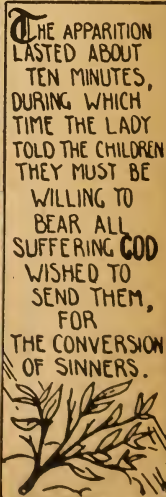 THE APPARITION
LASTED ABOUT
TEN MINUTES,
DURING WHICH
TIME THE LADY
TOLD THE CHILDREN
THEY MUST BE
WILLING TO
BEAR ALL
SUFFERING GOD
WISHED TO
SEND THEM,
FOR
THE CONVERSION
OF SINNERS.